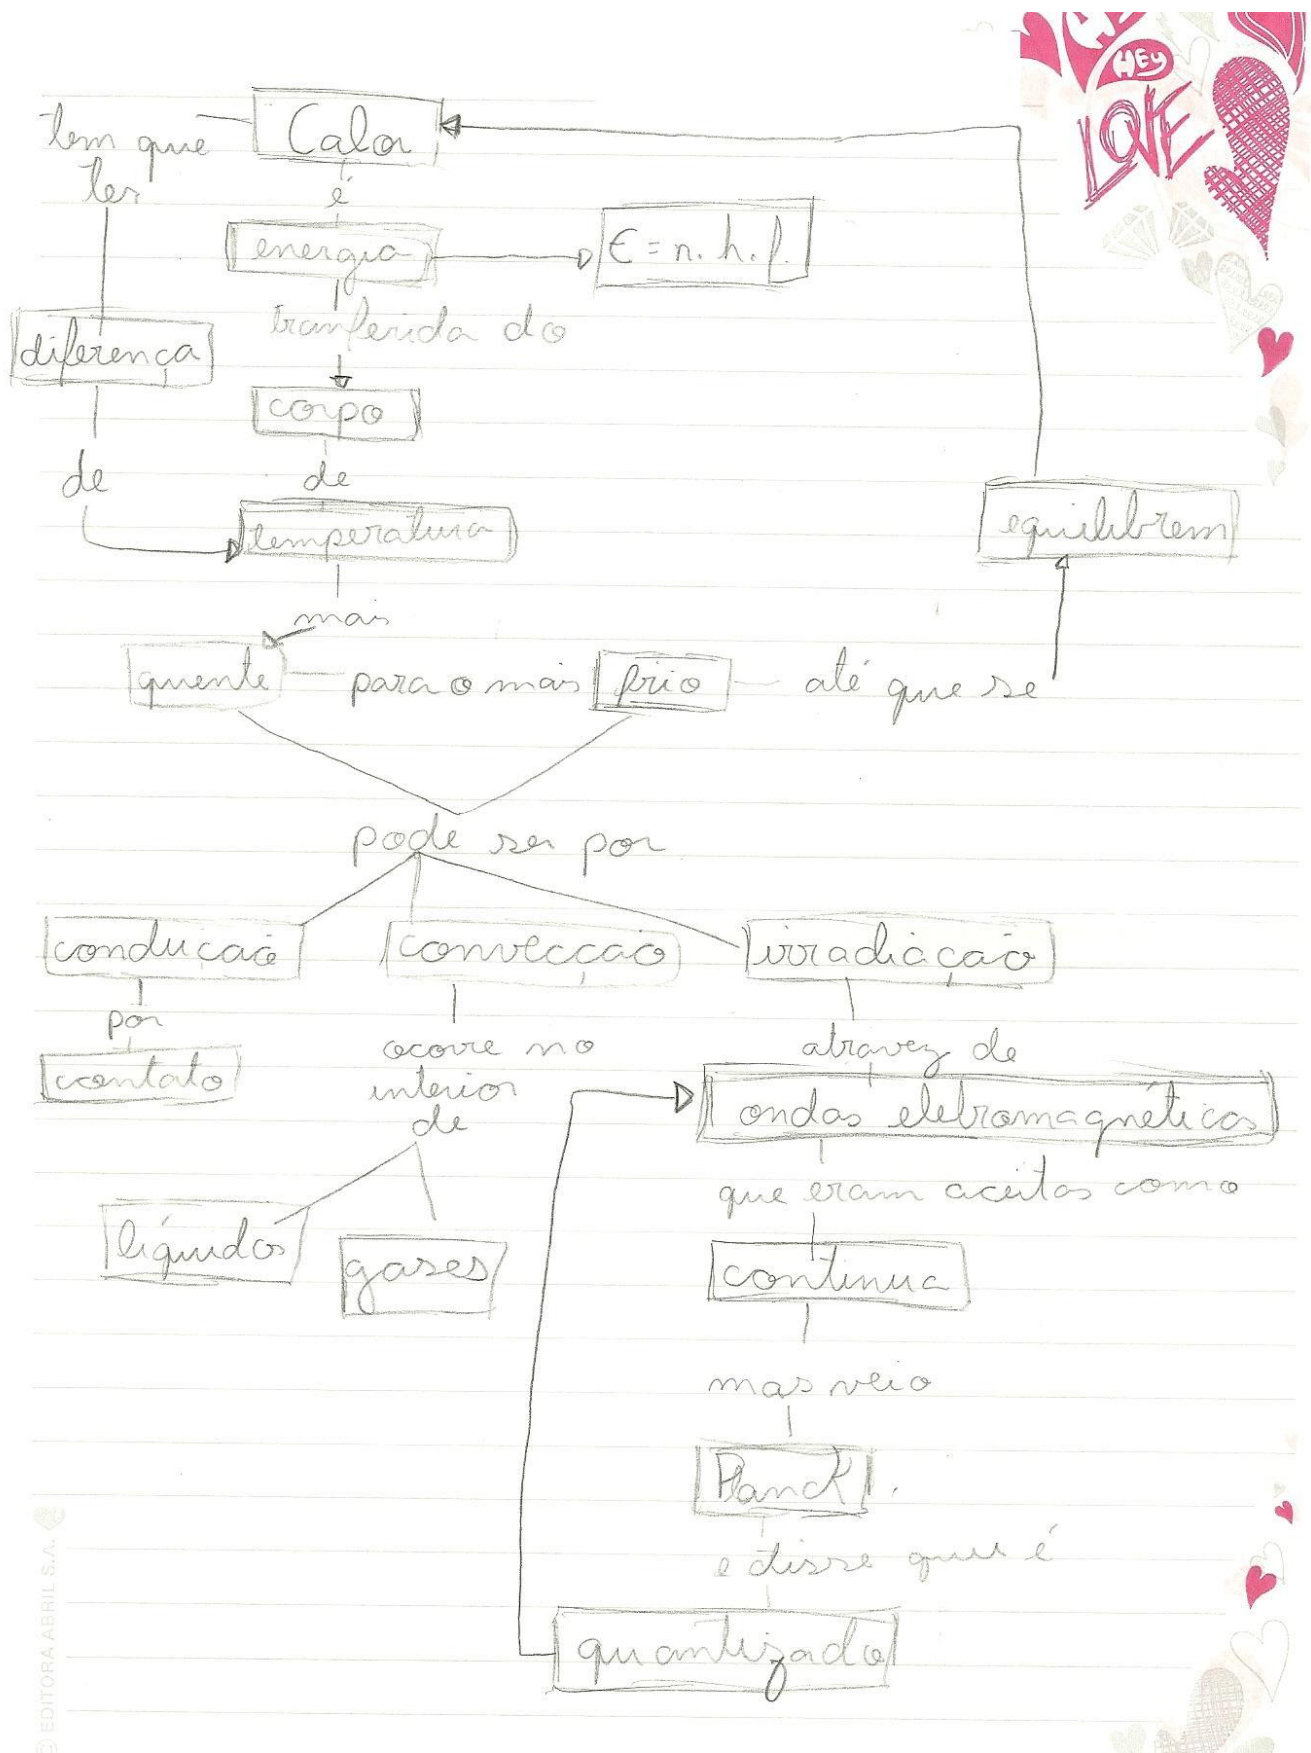 HEY
LOVE
tem que
ter
Calor
é
energia
E = n. h. f.
tranferida do
diferença
corpo
de
de
temperatura
equilibrem
mais
quente para o mais frio até que se
pode ser por
conducão convecção irradiação
por
contato
ocorre no
interior
de
atravez de
ondas eletromagnéticas
que eram aceitas como
líquidos
gases
continua
mas veio
Planck
e disse que é
quantizado
© EDITORA ABRIL S.A.